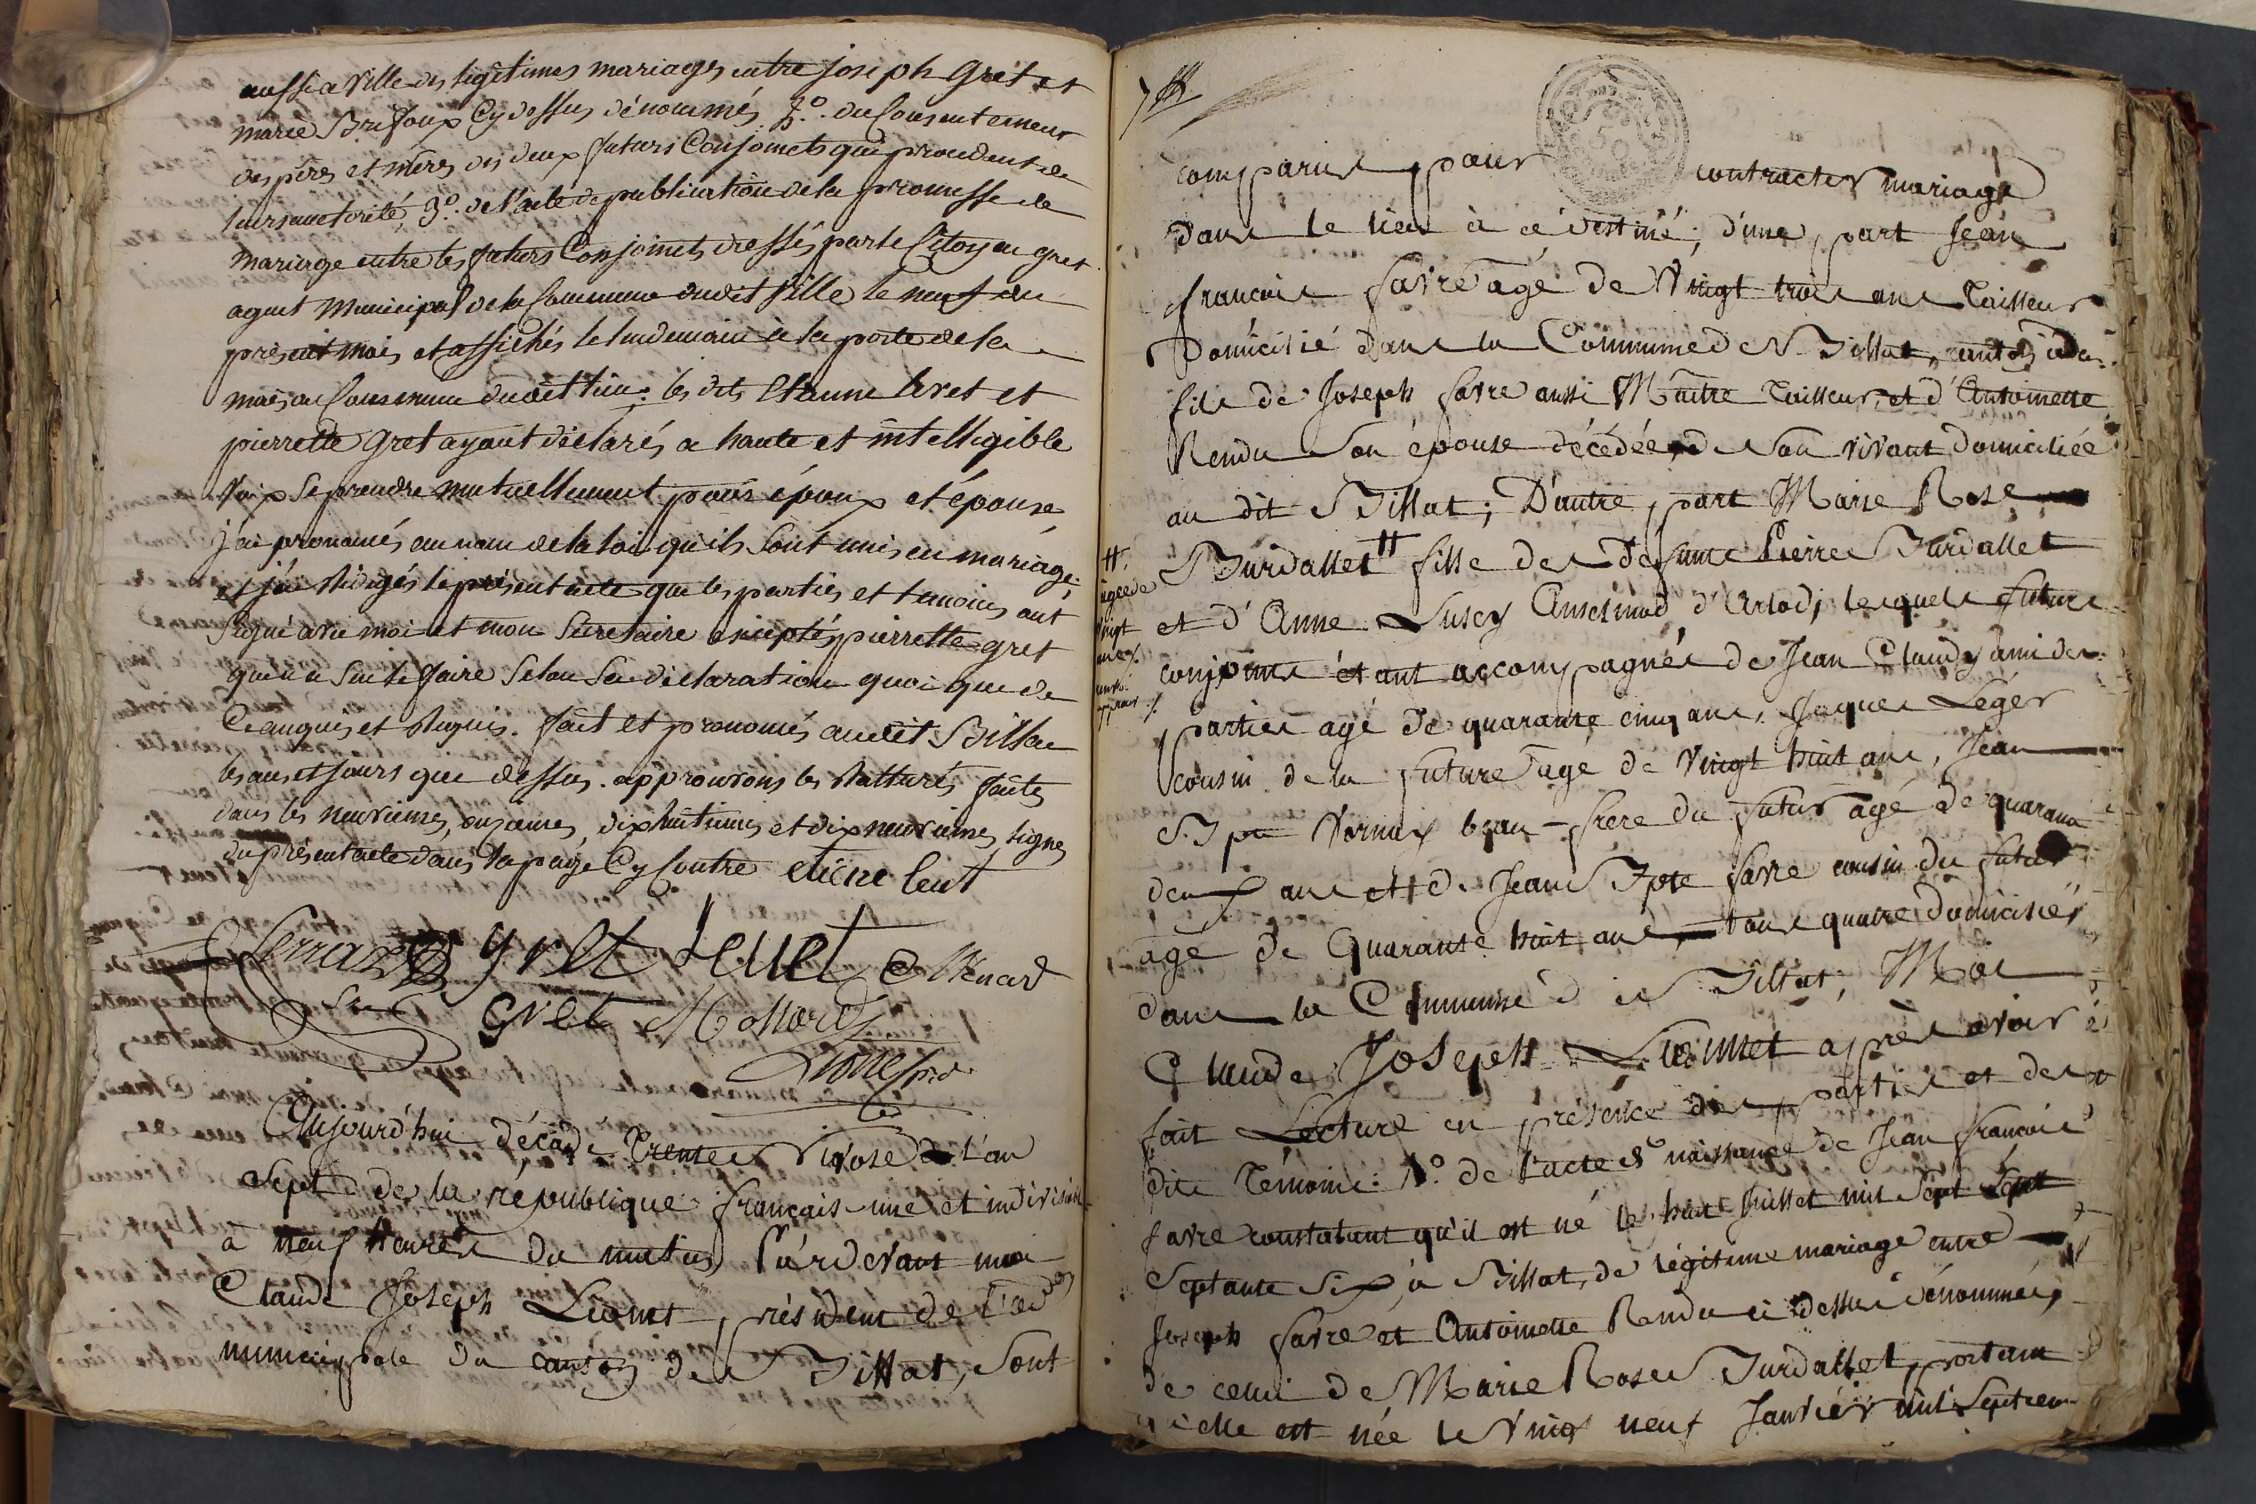 aussi a Ville des légitimes mariages entre joseph Gret et
marie Brifoux Cy dessus dénommés 2.° du Consentement
des pères et mères des deux futurs Conjoinets qui procedent de
leurs auctorité, 3.° de l'acte de publication de la promesse de
mariage entre les futurs Conjoinets dressés par le Citoyen gret
agent municipal de la Commune dudit Ville le neuf du
présent mois et affichés le lendemain à la porte de la
maison Commune dudit lieu. les dits Etienne Levet et
pierrette gret ayant déclarés a haute et intelligible
Voix Se prendre mutuellement pour époux et épouse,
j'ai pronomés au nom de la loi qu'ils Sont unis en mariage;
et j'ai Rédigés le présent acte que les parties et temoins ont
Signé avec moi et mon Secretaire exceptés pierrette gret
qui n'a Su le faire Selon Sa déclaration quoi que de
Ce enquis et Requis. fait et pronomés audit Billiat
les ans et jours que dessus. approuvons les Ratturés faites
dans les neuviemes, onziemes, dixhuitiemes et dixneuviemes lignes
du présent acte dans la page Cy Contre etiene levet
ferraz gret Levet C Menard
Gret
Aujourd'hui décade Trente Nivose de l'an
Sept de la république français une et indivisible
à neuf heures du matin Pardevant moi
Claude Joseph président de
municipale du canton de Billiat, Sont
comparus pour contracter mariage
dans le lieu à ce destiné; d'une part Jean
francois favre agé de Vingt trois ans Tailleur
Domicilié dans la Commune de Billiat,
fils de Joseph favre aussi Maitre Tailleur et d'Antoinette
Rendu Son épouse décédée, de Son vivant domiciliée
au dit Billiat; D'autre part Marie Rose
Burdallet # fille des défunts Pierre Burdallet
#
agée de
vingt
ans
et d'Anne Lusey d'Arlod; lesquels futurs
conjoints étant accompagnés de Jean Claude ami des
parties agé de quarante cinq ans, Jaques Léger
cousin de la future agé de vingt huit ans, Jean
Bpte beau-frere du futur agé de quarante
deux ans et de Jean Bpte favre cousin du futur
agé de Quarante huit ans, tous quatre domiciliés
dans la Commune de Billiat; Moi
Claude Joseph après avoir
fait Lecture en présence des parties et des
dits Témoins: 1.° de l'acte de naissance de Jean francois
favre constatant qu'il est né le huit Juillet mil Sept Sept
Septante Six, à Billiat, de légitime mariage entre
Joseph favre et Antoinette Rendu ci dessus dénommés,
de celui de Marie Rose Burdallet, portant
qu'elle est née le Vingt neuf Janvier mil Septcen